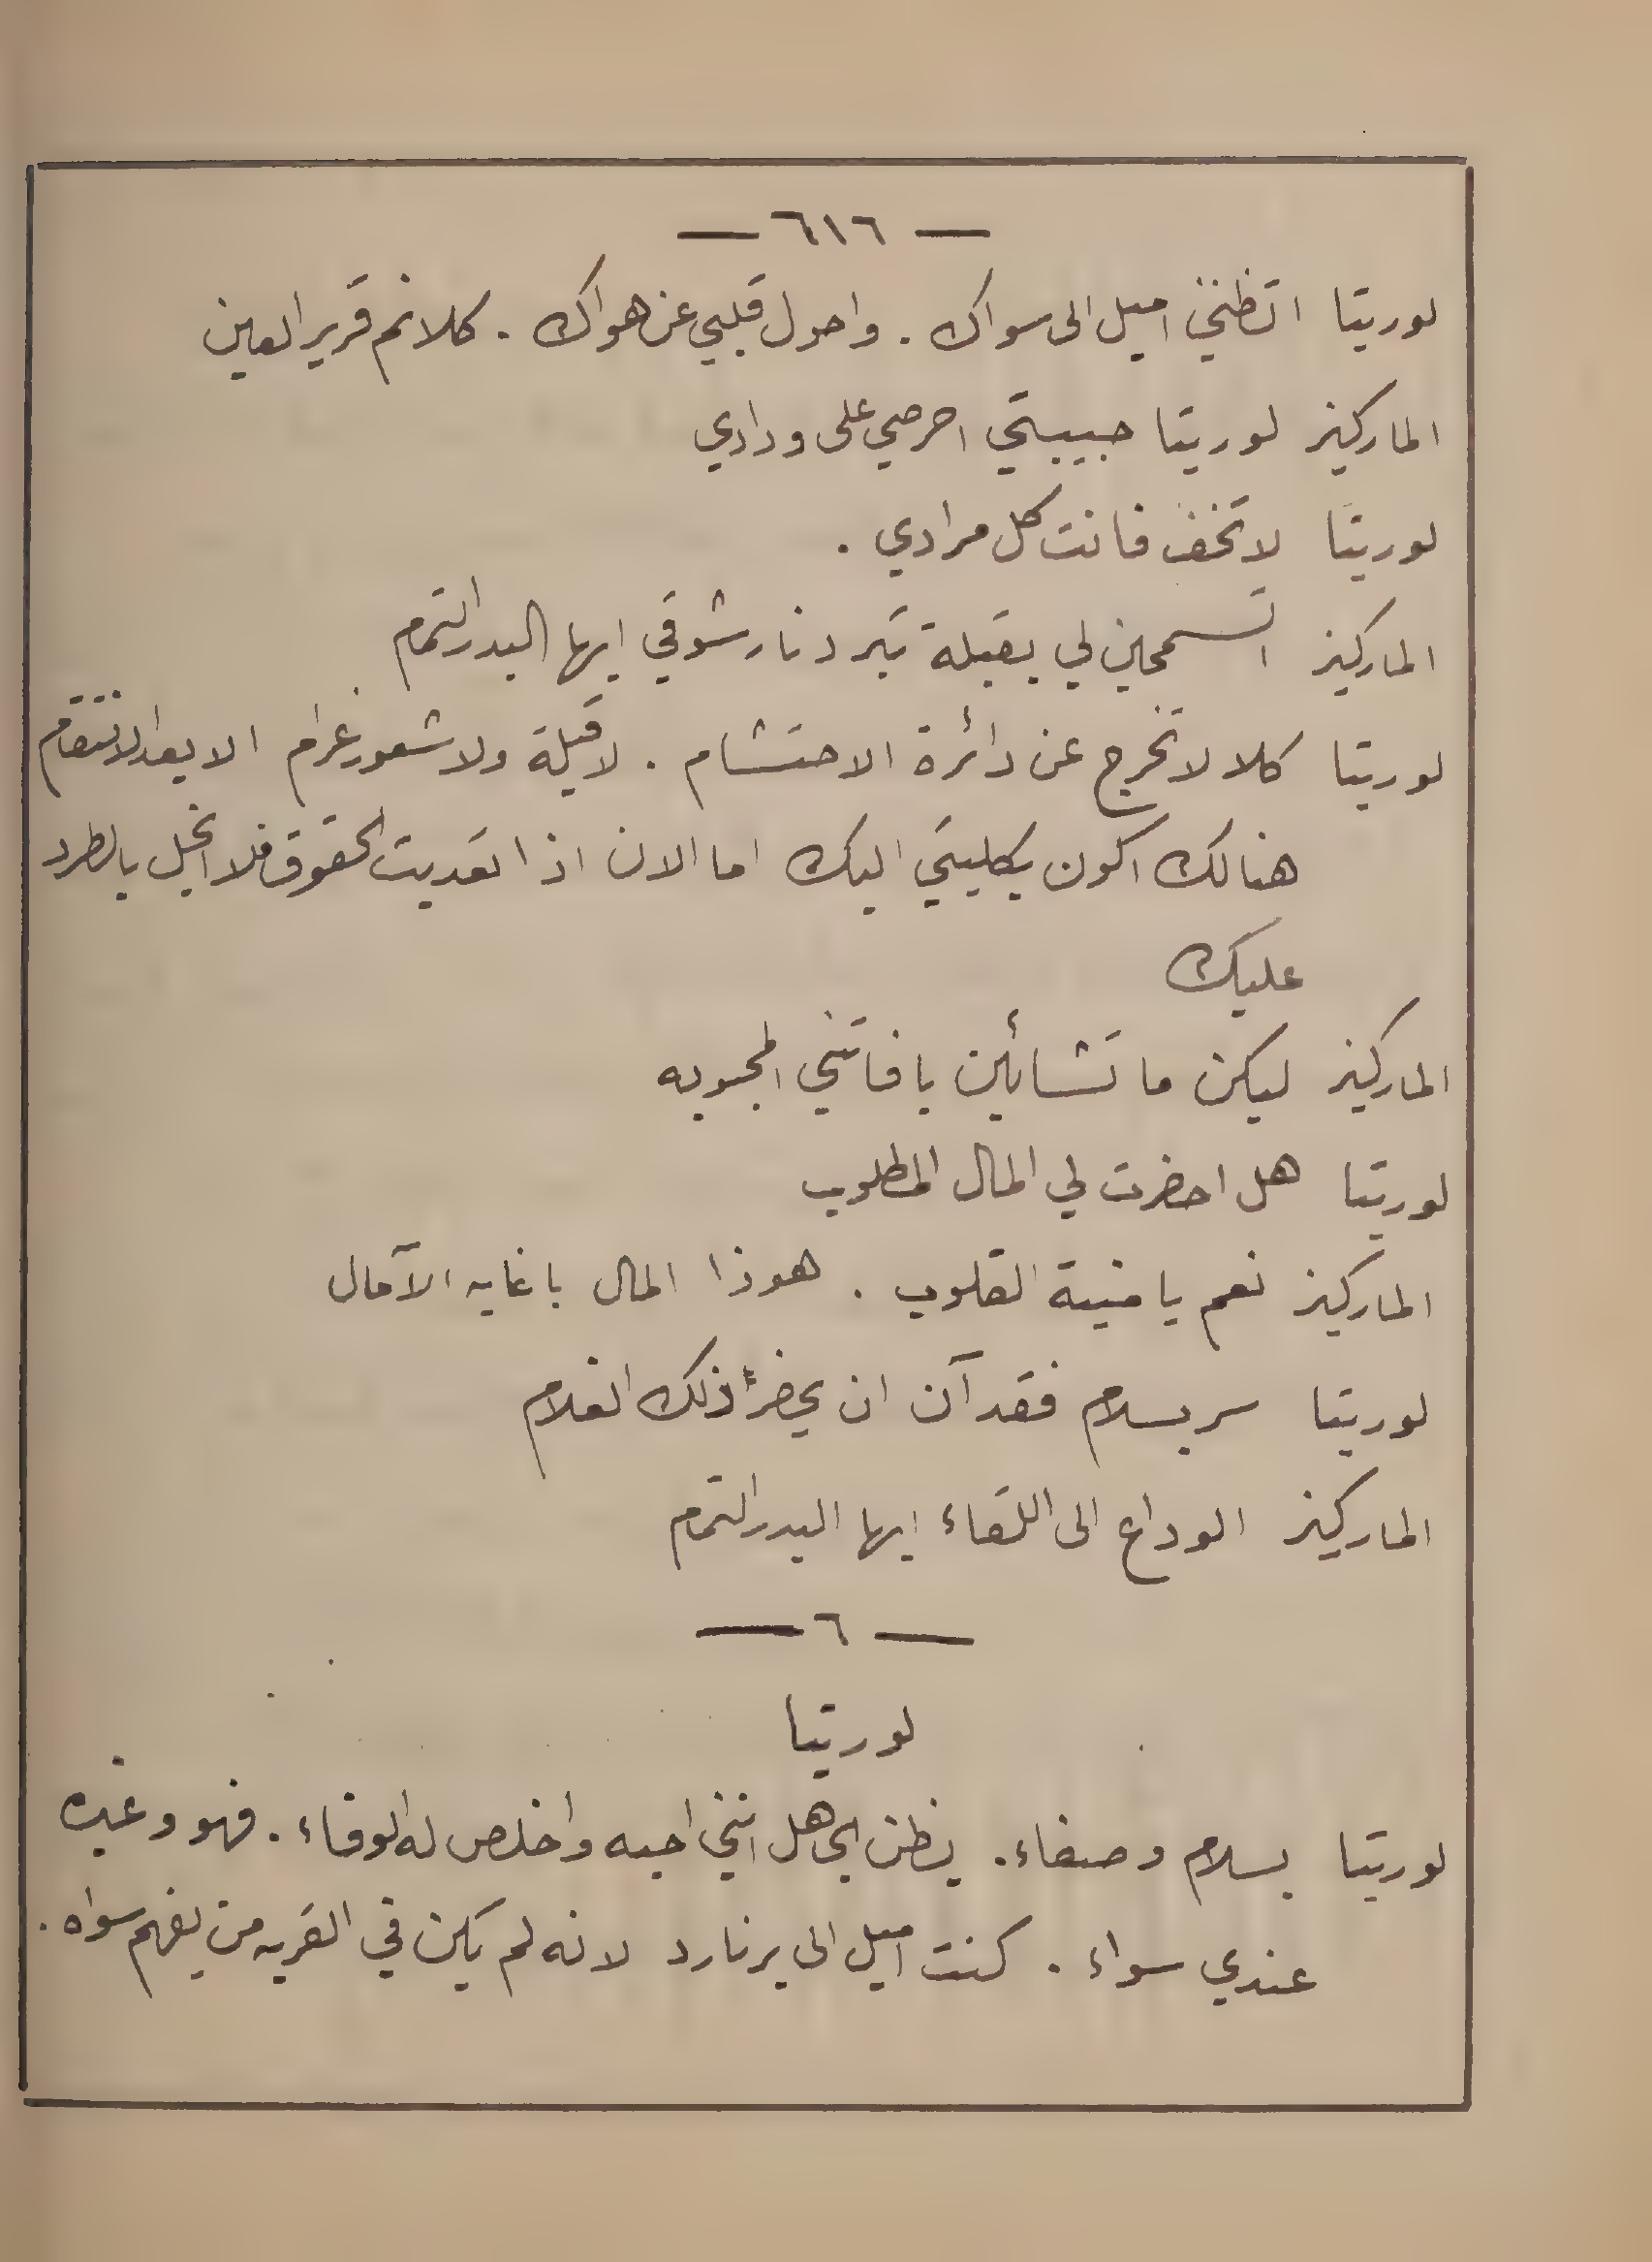 — ٦١٦ —
لوريتا اتظنني اميل الى سواك . واحول قلبي عن هواك . كلا نم قرير العين
الماركيز لوريتا حبيبتي احرصي على ودادي
لوريتا لا تخف فانت كل مرادي .
الماركيز اتسمحين لي بقبلة تبرد نار شوقي ايها البدر التمام
لوريتا كلا لا تخرج عن دائرة الاحتشام . لا قبلة ولا شعور غرام الا بعد الانتقام
هنالك اكون بكليتي اليك اما الان اذا تعديت الحقوق فلا ابخل بالطرد
عليك
الماركيز ليكن ما تشائين يا فاتنتي المحبوبه
لوريتا هل احضرت لي المال المطلوب
الماركيز نعم يا منية القلوب . هوذا المال يا غايه الآمال
لوريتا سر بسلام فقد آن ان يحضر ذلك الغلام
الماركيز الوداع الى اللقاء ايها البدر التمام
— ٦ —
لوريتا
لوريتا بسلام وصفاء . يظن الجاهل انني احبه واخلص له الوفاء . فهو وغيره
عندي سواء . كنت اميل الى برنارد لانه لم يكن في القريه من يفهم سواه .